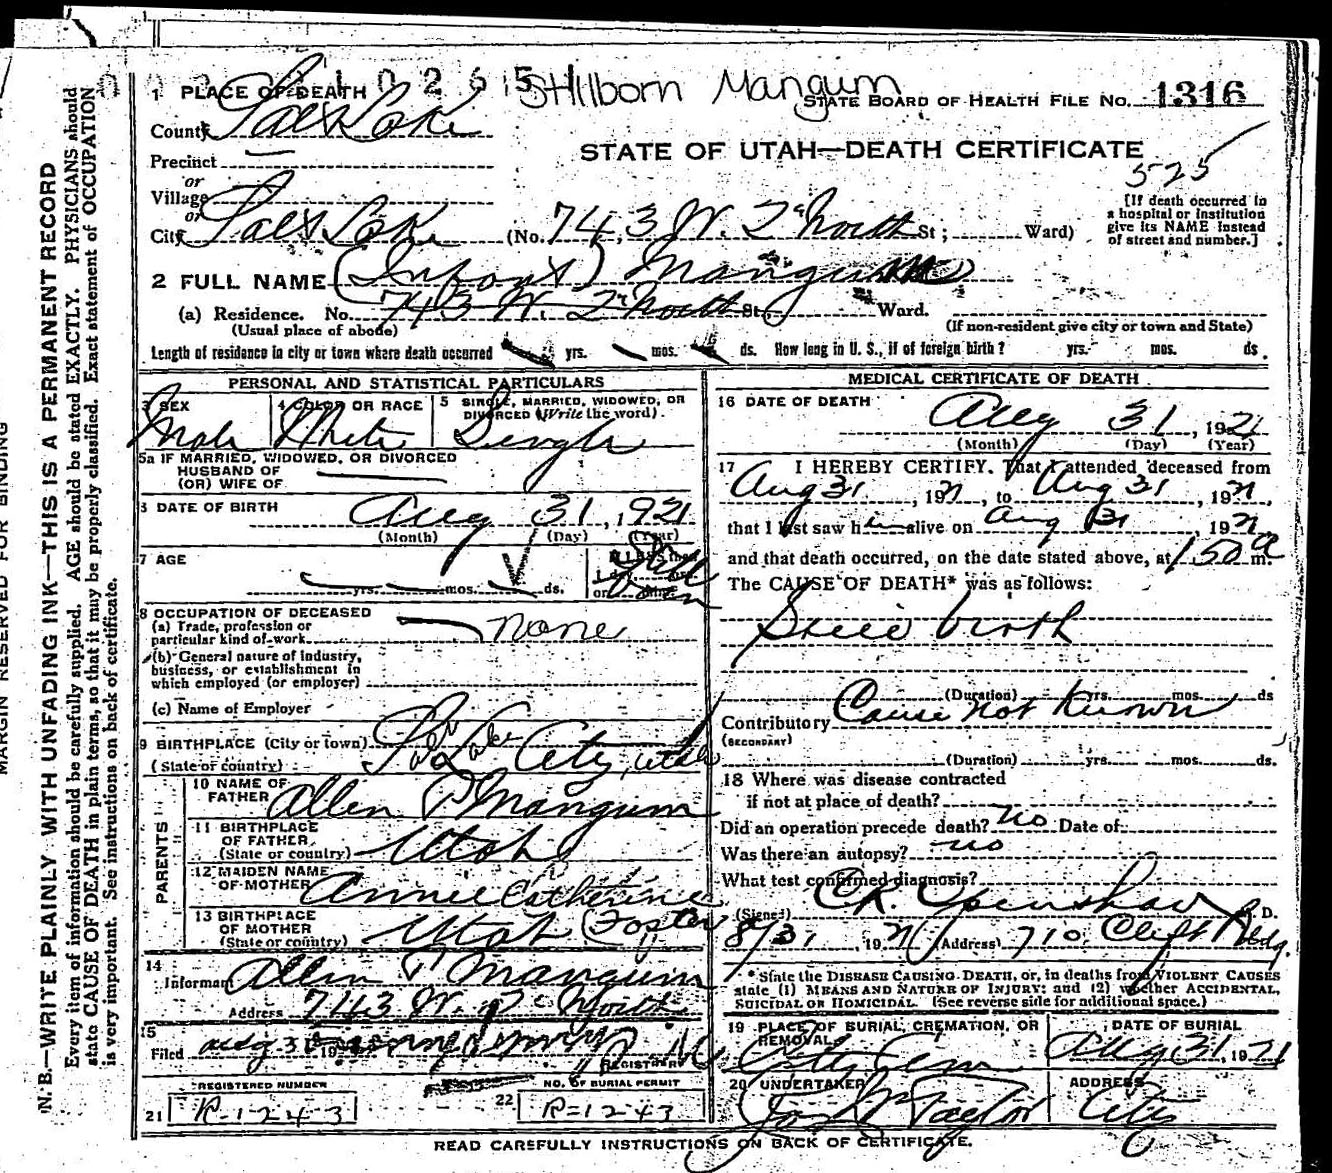 MARGIN RESERVED FOR BINDING
N. B.—WRITE PLAINLY WITH UNFADING INK—THIS IS A PERMANENT RECORD
Every item of information should be carefully supplied. AGE should be stated EXACTLY. PHYSICIANS should
state CAUSE OF DEATH in plain terms, so that it may be properly classified. Exact statement of OCCUPATION
is very important. See instructions on back of certificate.
Stillborn Mangum
1 PLACE OF DEATH
STATE BOARD OF HEALTH FILE NO. 1316
County Salt Lake
STATE OF UTAH—DEATH CERTIFICATE
525
Precinct
or
Village
or
City Salt Lake (No. 743 W. 2d North St; Ward)
[If death occurred in
a hospital or institution
give its NAME instead
of street and number.]
2 FULL NAME (Infant) Mangum
(a) Residence. No. 743 W. 2d North St., Ward.
(Usual place of abode) (If non-resident give city or town and State)
Length of residence in city or town where death occurred yrs. mos. ds. How long in U. S., if of foreign birth? yrs. mos. ds.
PERSONAL AND STATISTICAL PARTICULARS
3 SEX Male
4 COLOR OR RACE White
5 SINGLE, MARRIED, WIDOWED, OR
DIVORCED (Write the word). Single
5a IF MARRIED, WIDOWED, OR DIVORCED
HUSBAND OF
(OR) WIFE OF
6 DATE OF BIRTH Aug 31, 1921
(Month) (Day) (Year)
7 AGE
yrs. mos. ds.
Still
Born
8 OCCUPATION OF DECEASED
(a) Trade, profession or
particular kind of work none
(b) General nature of industry,
business, or establishment in
which employed (or employer)
(c) Name of Employer
9 BIRTHPLACE (City or town)
(State or country) Salt Lake City, Utah
PARENTS
10 NAME OF
FATHER Allen P Mangum
11 BIRTHPLACE
OF FATHER
(State or country) Utah
12 MAIDEN NAME
OF MOTHER Annie Catherine
(Foster)
13 BIRTHPLACE
OF MOTHER
(State or country) Utah
14
Informant Allen P Mangum
Address 743 W. 2d North
15
Filed Aug 31 19
REGISTRAR
REGISTERED NUMBER
21 R-1243
NO. OF BURIAL PERMIT
22 R=1243
MEDICAL CERTIFICATE OF DEATH
16 DATE OF DEATH Aug 31, 1921
(Month) (Day) (Year)
17 I HEREBY CERTIFY. That I attended deceased from
Aug 31, 1921, to Aug 31, 1921,
that I last saw him alive on Aug 31 1921
and that death occurred, on the date stated above, at 150 a m.
The CAUSE OF DEATH* was as follows:
Still birth
(Duration) yrs. mos. ds
Contributory Cause not known
(SECONDARY)
(Duration) yrs. mos. ds.
18 Where was disease contracted
if not at place of death?
Did an operation precede death? no Date of
Was there an autopsy? no
What test confirmed diagnosis?
(Signed) C.R. Openshaw M.D.
8/31, 1921 (Address) 710 Clift Bldg.
* State the DISEASE CAUSING DEATH, or, in deaths from VIOLENT CAUSES
state (1) MEANS AND NATURE OF INJURY; and (2) whether ACCIDENTAL,
SUICIDAL OR HOMICIDAL. (See reverse side for additional space.)
19 PLACE OF BURIAL, CREMATION, OR
REMOVAL City Cem
DATE OF BURIAL
Aug 31, 1921
20 UNDERTAKER
Jos Wm Taylor
ADDRESS
City
READ CAREFULLY INSTRUCTIONS ON BACK OF CERTIFICATE.